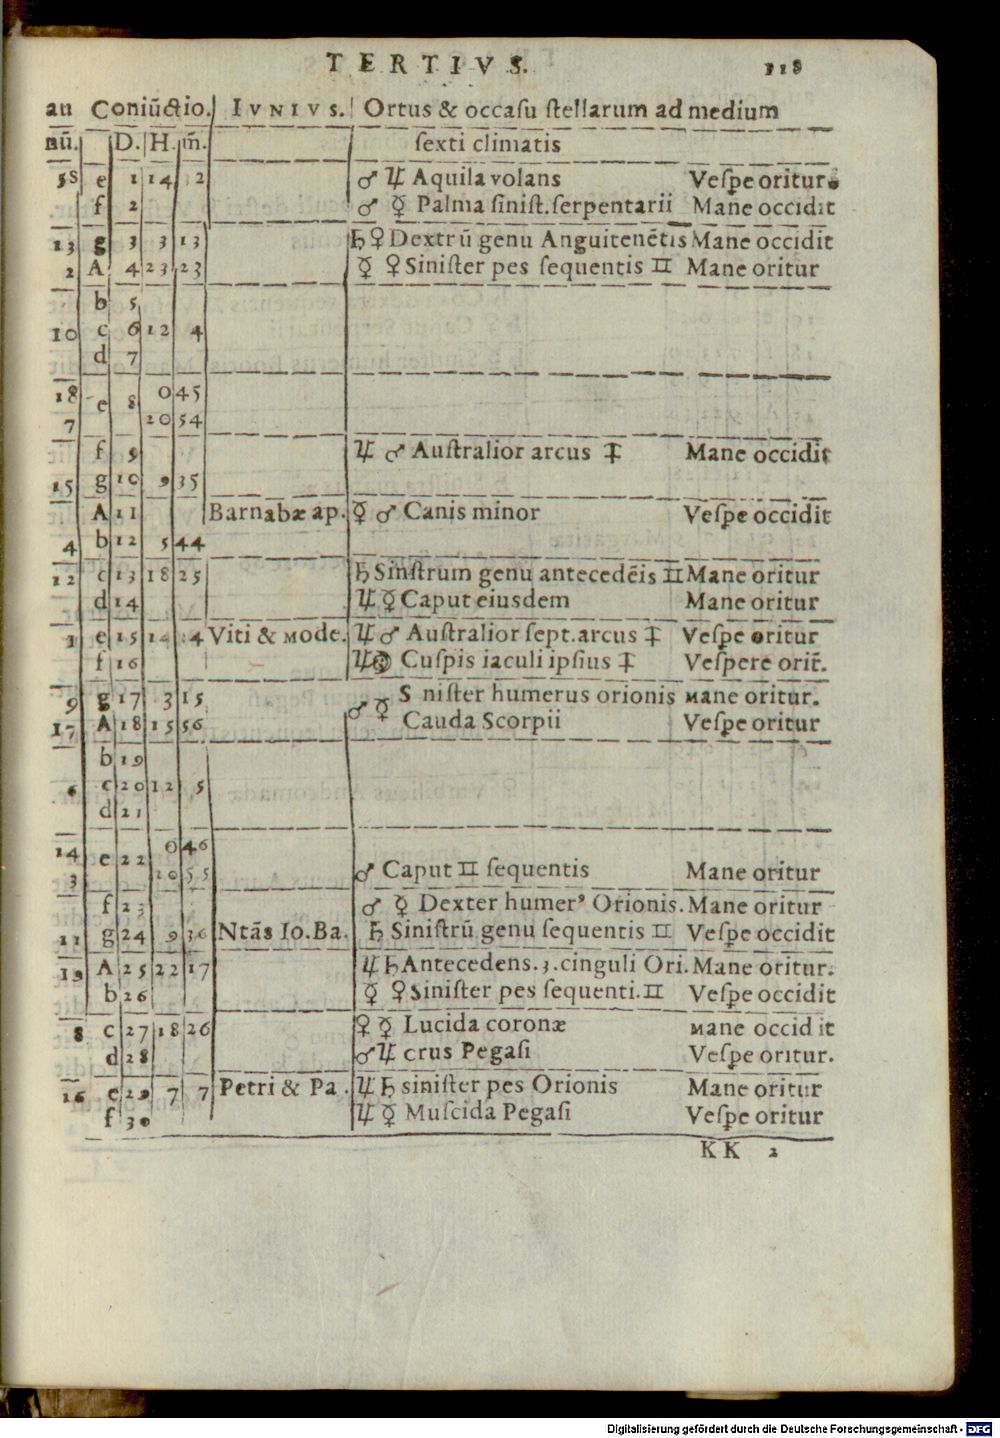 TERTIVS. 118
au Coniũctio. IVNIVS. Ortus & occasu stellarum ad medium
nũ. D. H. m̃. sexti climatis
e 1 14 ♂ ♃ Aquila volans Vespe oritur.
f 2 ♂ ☿ Palma sinist. serpentarii Mane occidit
13 g 3 3 13 ♄ ♀ Dextrũ genu Anguitenẽtis Mane occidit
2 A 4 23 23 ☿ ♀ Sinister pes sequentis ♊ Mane oritur
b 5
10 c 6 12 4
d 7
18 e 8 0 45
7 20 54
f 9 ♃ ♂ Australior arcus ♐ Mane occidit
15 g 10 9 35
A 11 Barnabæ ap. ☿ ♂ Canis minor Vespe occidit
4 b 12 5 44
12 c 13 18 25 ♄ Sinistrum genu antecedẽis ♊ Mane oritur
d 14 ♃ ☿ Caput eiusdem Mane oritur
1 e 15 14 Viti & mode. ♃ ♂ Australior sept. arcus ♐ Vespe oritur
f 16 ♃ Cuspis iaculi ipsius ♐ Vespere orit̃.
9 g 17 3 15 ♂ ☿ S nister humerus orionis mane oritur.
17 A 18 15 56 Cauda Scorpii Vespe oritur
b 19
6 c 20 12 5
d 21
14 e 22 0 46
3 20 55 ♂ Caput ♊ sequentis Mane oritur
f 23 ♂ ☿ Dexter humerꝰ Orionis. Mane oritur
11 g 24 9 36 Ntãs Io. Ba. ♄ Sinistrũ genu sequentis ♊ Vespe occidit
19 A 25 22 17 ♃ ♄ Antecedens. 3. cinguli Ori. Mane oritur.
b 26 ☿ ♀ Sinister pes sequenti. ♊ Vespe occidit
8 c 27 18 26 ♀ ☿ Lucida coronæ mane occid it
d 28 ♂ ♃ crus Pegasi Vespe oritur.
16 e 29 7 7 Petri & Pa. ♃ ♄ sinister pes Orionis Mane oritur
f 30 ♃ ☿ Muscida Pegasi Vespe oritur
KK 2
Digitalisierung gefördert durch die Deutsche Forschungsgemeinschaft - DFG